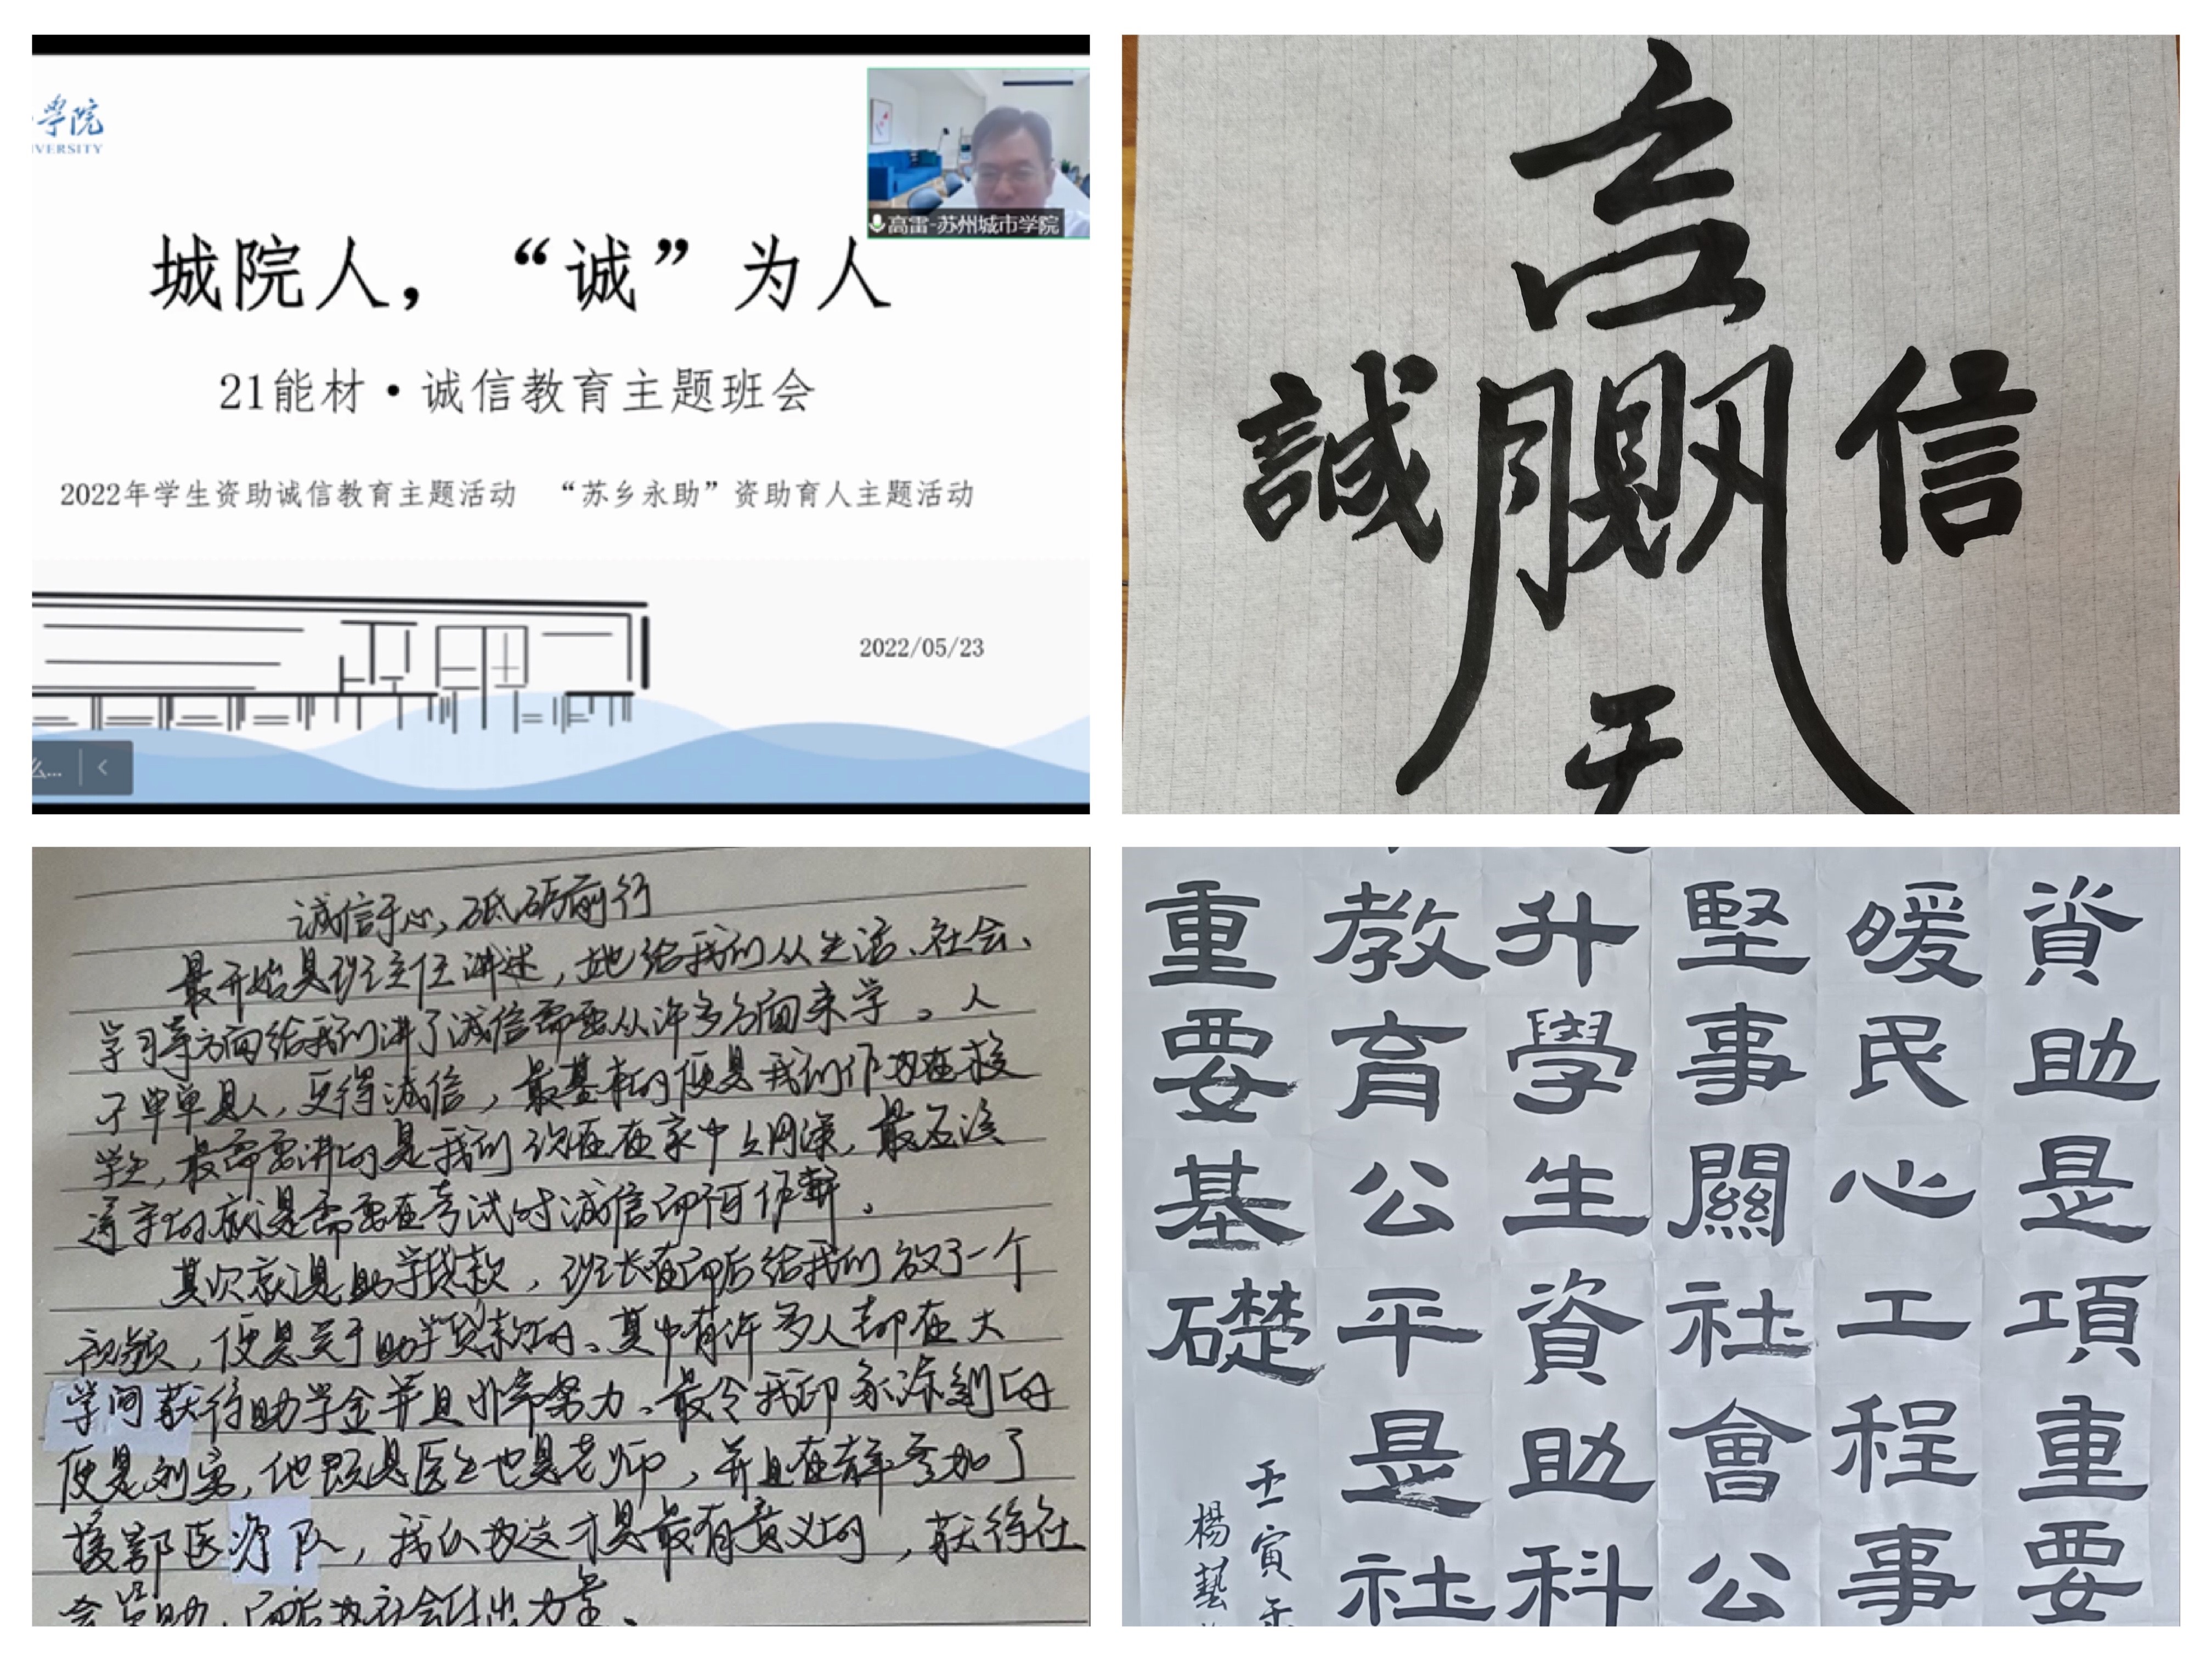 學院
VERSITY
高雷-苏州城市学院
城院人，“诚”为人
21能材·诚信教育主题班会
2022年学生资助诚信教育主题活动 “苏乡永助”资助育人主题活动
2022/05/23
么...
誠贏信
天
诚信于心，砥砺前行
最开始是班主任讲述，她给我们从生活、社会、
学习等方面给我们讲了诚信需要从许多方面来学。人
不单单是人，更得诚信，最基本的便是我们作为在校
学生，最需要讲的是我们现在在家中上网课，最应该
遵守的就是需要在考试时诚信而何作弊。
其次就是助学贷款，班长在而后给我们放了一个
视频，便是关于助学贷款的。其中有许多人都在大
学间获得助学金并且非常努力。最令我印象深刻的
便是刘寅，他既是医生也是老师，并且在前年参加了
援鄂医疗队，我认为这才是最有意义的，获得社
会资助，而后为社会付出力量。
資助是項重要
暖民心工程事
堅事關社會公
升學生資助科
教育公平是社
重要基礎
壬寅年
楊藝